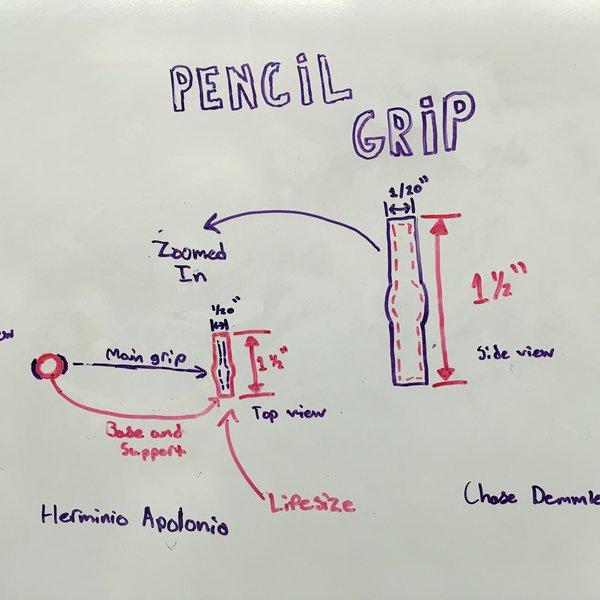 PENCIL
GRIP
1/20"
Zoomed
In
1 1/2"
1/20"
Main grip
1 1/2"
Side view
Top view
Base and
Support
Lifesize
Herminio Apolonio
Chase